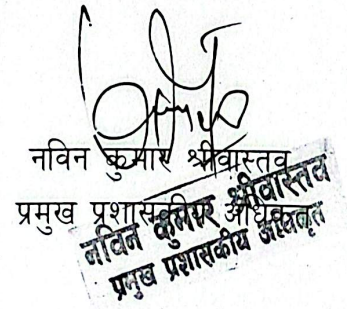 नविन कुमार श्रीवास्तव
प्रमुख प्रशासकीय अधिकृत
नविन कुमार श्रीवास्तव
प्रमुख प्रशासकीय अधिकृत